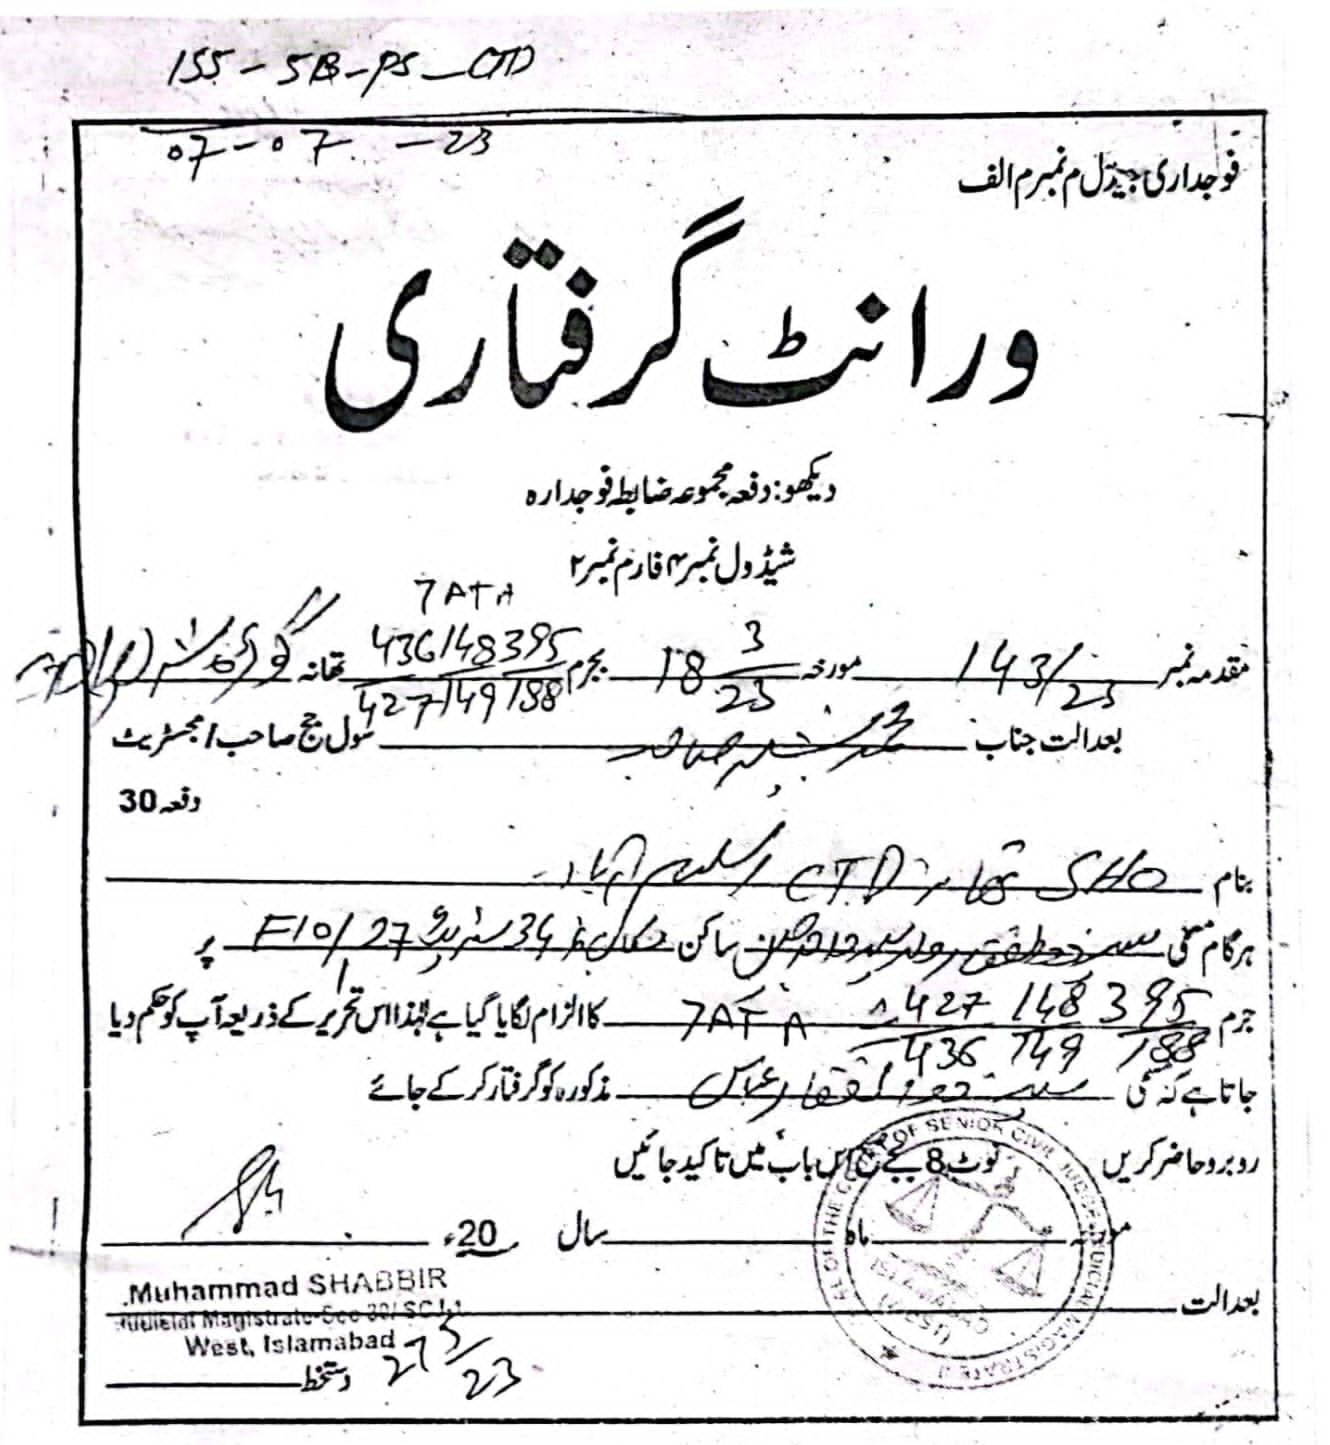 155-5B-PS-CTD
07-07-23
فوجداری جیڈل م نمبر م الف
ورانٹ گرفتاری
دیکھو: دفعہ مجموعہ ضابطہ فوجدارہ
شیڈول نمبر ۴ فارم نمبر ۲
7ATA
مقدمہ نمبر 143/23 مورخہ 18 3/23 بجرم 436/148 395 427/149/188 تھانہ
بعدالت جناب محمد شبیر صاحب سول جج صاحب / مجسٹریٹ
دفعہ 30
بنام SHO تھانہ CTD اسلام آباد
ہرگام مسمی سید ذوالفقار ولد سید ساکن مکان 34 سٹریٹ 27 F10/ پر
جرم 395 148 427 188 149 436 7ATA کا الزام لگایا گیا ہے لہٰذا اس تحریر کے ذریعہ آپ کو حکم دیا
جاتا ہے کہ مسمی سید ذوالفقار عباس مذکورہ کو گرفتار کر کے جائے
روبرو حاضر کریں نوٹ 8 بجے صبح اس باب میں تاکید جانیں
مورخہ ماہ سال 20ء
Muhammad SHABBIR
بعدالت
Judicial Magistrate-Sec 30/ SCJ-1
West, Islamabad
دستخط 27 5/23
SEAL OF THE COURT OF SENIOR CIVIL JUDGE JUDICIAL MAGISTRATE
ISLAMABAD
(WEST)